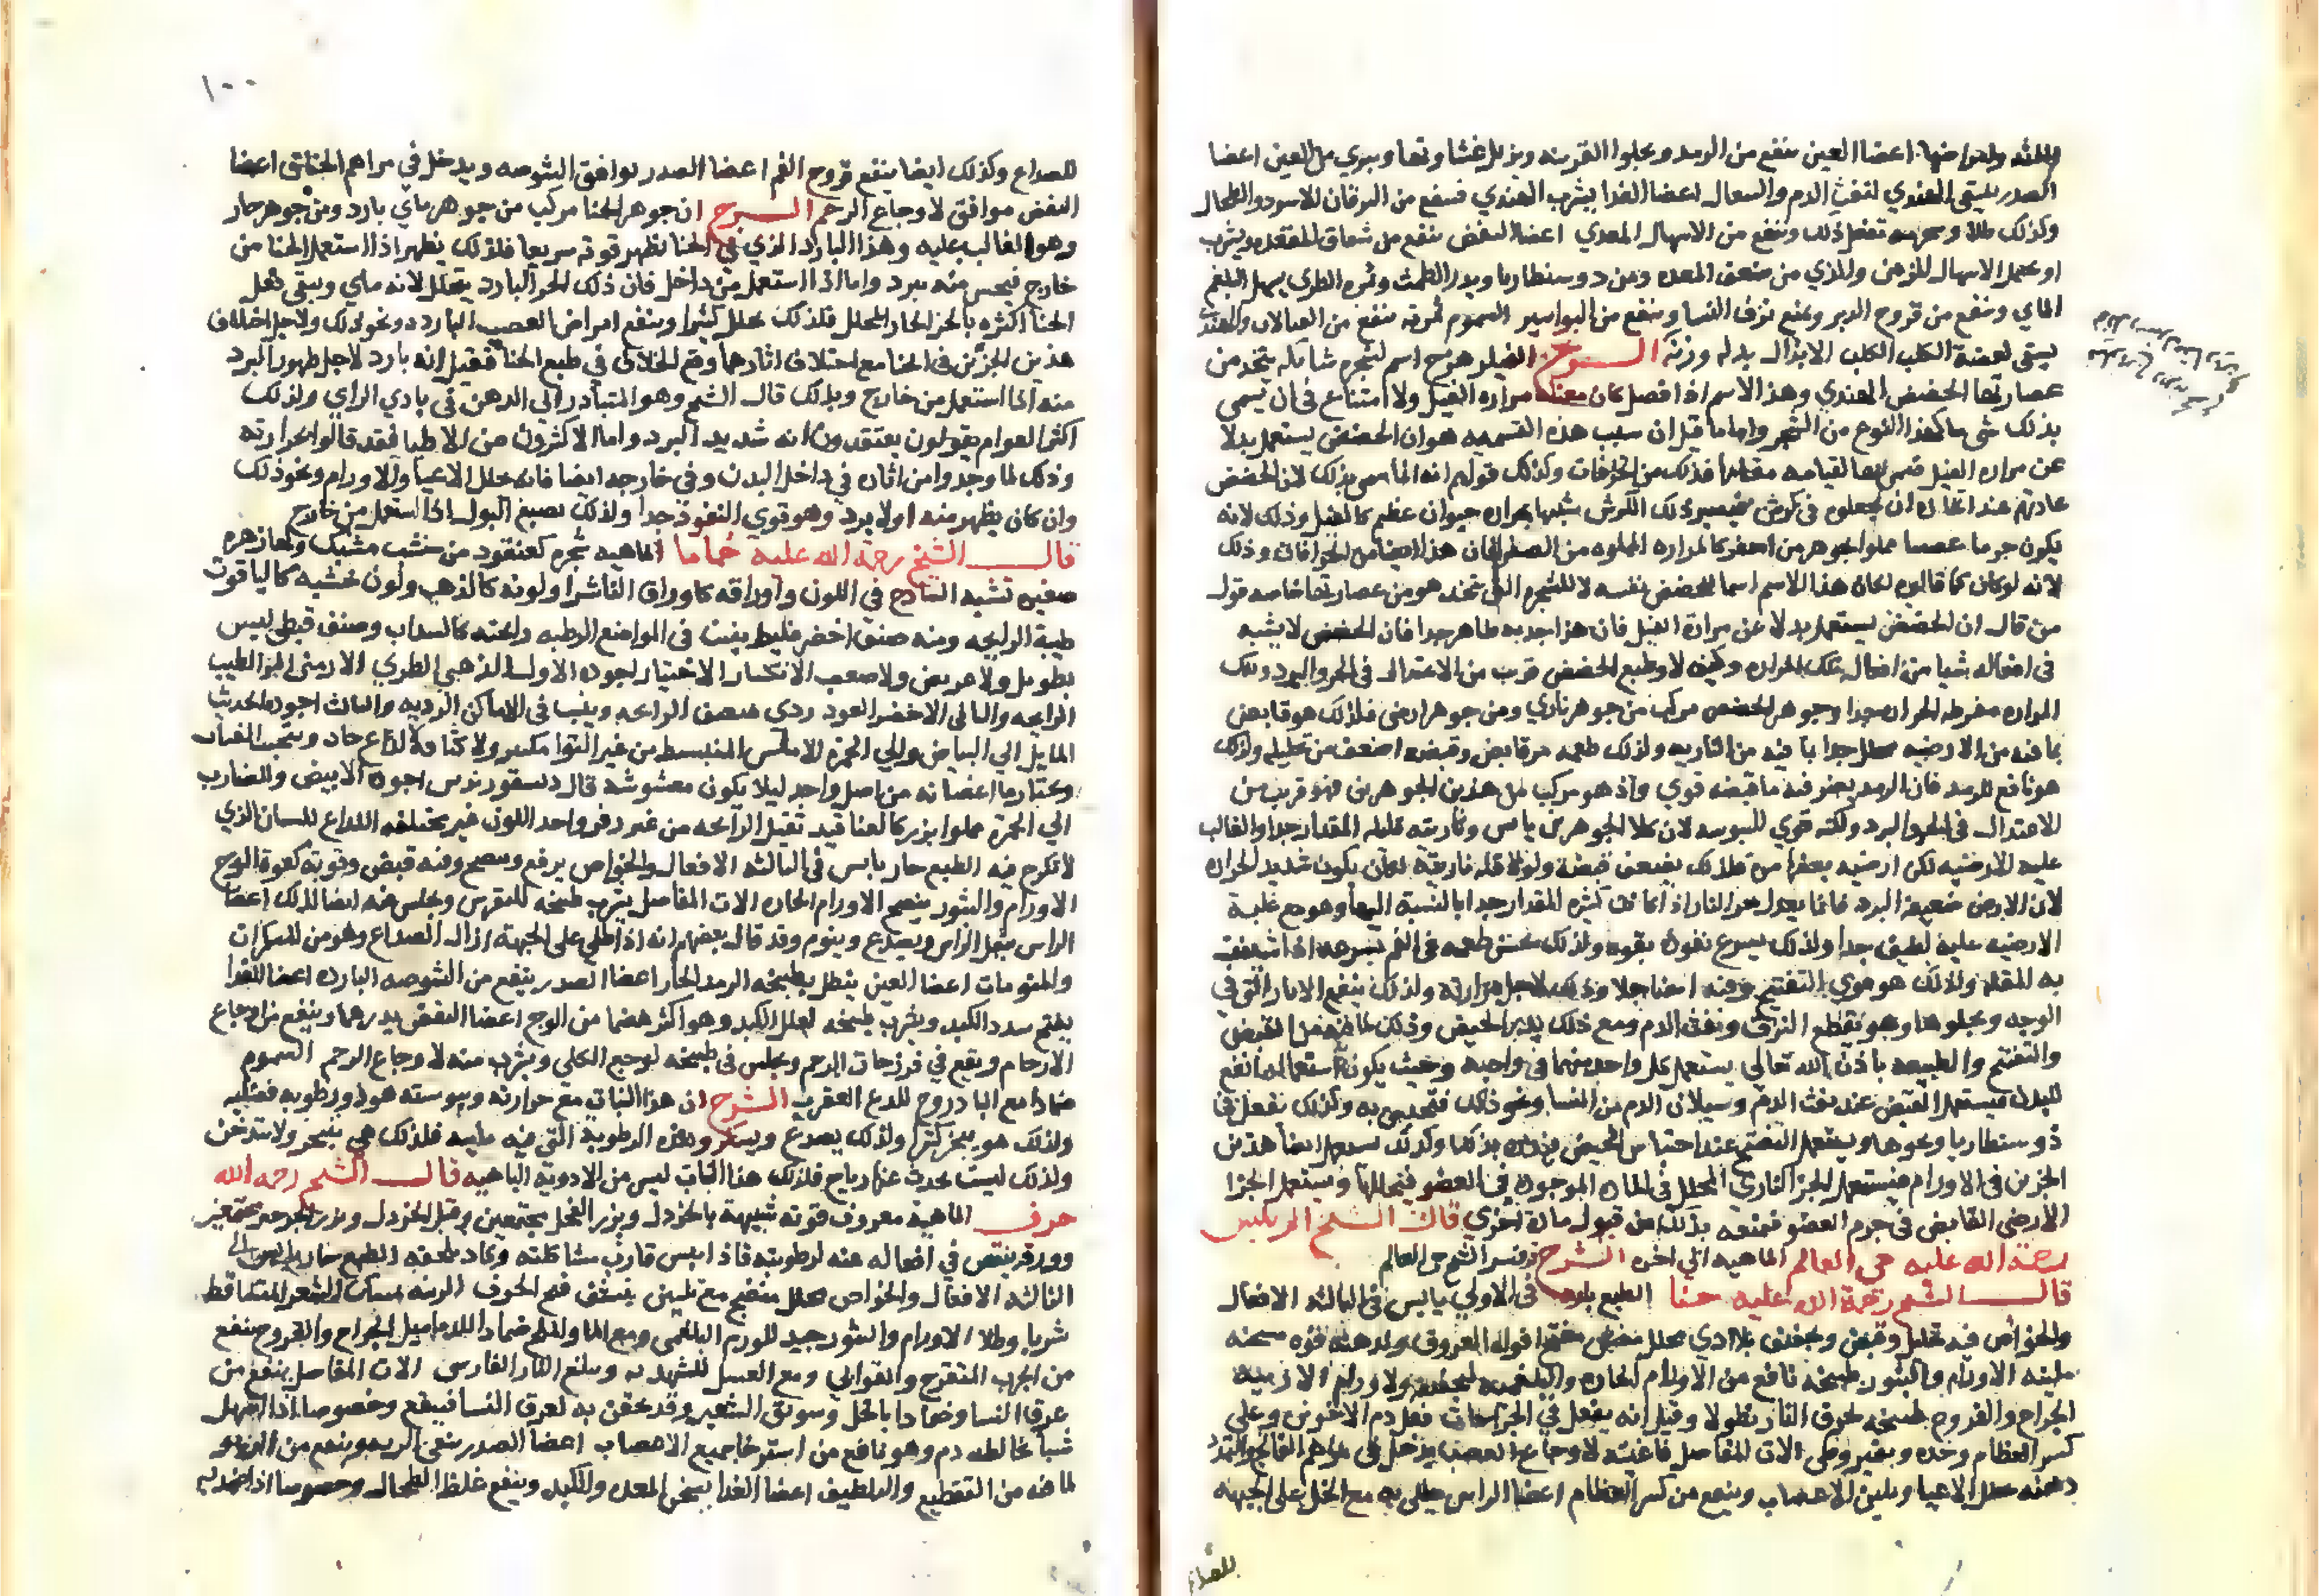 واللثه وامراضها اعضا العين ينفع من الرمد ويجلوا القرنيه ويزيل غشاوتها ويبري من العين اعضا
الصدر يسقى الهندي لنفث الدم والسعال اعضا الغذا يشرب الهندي فينفع من اليرقان الاسود والطحال
وكذلك طلا تفعل ذلك وينفع من الاسهال المعدي اعضا النفض ينفع من شقاق المقعده ويشرب
او يحمل الاسهال المزمن والذي من ضعف المعده ومن دوسنطاريا ويدر الطمث وثمره الطري يسهل البلغم
الماي وينفع من قروح الدبر ويمنع نزف النسا وينفع من البواسير السموم ثمرته تنفع من القتالات والهندي
يسقى لعضة الكلب الكلب الابدال بدله وزنه الشرح الفيلزهرج اسم لشجره شايكه يتخذ من
عصارتها الحضض الهندي وهذا الاسم اذا فصل كان معناه مراره الفيل ولا امتناع في ان يسمى
بذلك شي ما كهذا النوع من الشجر واما ما قيل ان سبب هذه التسميه هو ان الحضض يستعمل بدلا
عن مراره الفيل فذلك من الخرافات وكذلك قولهم انه انما سمي بذلك لان الحضض
عادتهم عند اتخاذه ان يجعلوه في كرش فيصير ذلك الكرش شبيها بمراره حيوان عظيم كالفيل وذلك لانه
يكون جرما مملوا بجوهر من اصفر كالمراره المملوه من الصفرا فان هذا ايضا من الخرافات وذلك
لانه لو كان كما قالوه لكان هذا الاسم اسما للحضض نفسه لا للشجره التي يتخذ هو من عصارتها خاصه قول
من قال ان الحضض يستعمل بدلا عن مرارة الفيل فان هذا جدبه ظاهر جدا فان الحضض لا يشبه
في افعاله شيا من افعال تلك المراره وكيف لا وطبع الحضض قريب من الاعتدال في الحر والبرد وتلك
المراره مفرطه الحراره جدا وجوهر الحضض مركب من جوهر ناري ومن جوهر ارضي فلذلك هو قابض
بما فيه من الارضيه محلل جدا بما فيه من الناريه ولذلك طعمه مر قابض وقبضه اضعف من تحليله ولذلك
هو نافع للرمد فان الرمد يضر فيه ما قبضه قوي واذ هو مركب من هذين الجوهرين فهو قريب من
الاعتدال في الحر والبرد ولكنه قوي اليبوسه لان كلا الجوهرين يابس وناريته قليله المقدار جدا والغالب
عليه الارضيه لكن ارضيته بعضها مر فلذلك يضعف قبضه ولولا قله ناريته لكان يكون شديد الحراره
لان الارض ضعيفة البرد فانما يعدل حر النار اذا كانت كثيره المقدار جدا بالنسبة اليها وهو مع غلبة
الارضيه عليه لطيف جدا ولذلك يسرع نفوذه بقوه ولذلك يحس طعمه في الفم بسرعه اذا
به المقله ولذلك هو قوي التفتيح وفيه ايضا جلا وذلك لاجل مرارته ولذلك ينفع الاثار التي في
الوجه ويجلوها وهو يقطع النزف ونفث الدم ومع ذلك يدر الحيض وذلك لما فيه من القبض
والتفتيح والطبيعه باذن الله تعالى يستعمل كل واحد منهما في واجبه وحيث يكون استعماله انفع
للبدن فيستعمل القبض عند نفث الدم وسيلان الدم من النسا ونحو ذلك فتحبس به وكذلك تفعل في
ذوسنطاريا ونحوها ويستعمل التفتيح عند احتباس الحيض وكذلك يستعمل ايضا هذين
الجزئين في الاورام فيستعمل الجز الناري المحلل في الماده الموجوده في العضو فيحللها ويستعمل الجزا
الارضي القابض في جرم العضو فتمنعه بذلك من قبول مادة اخرى قال الشيخ الرييس
رحمة الله عليه حي العالم الماهيه الى اخره الشرح قد فسر الشيخ حي العالم
قال الشيخ رحمة الله عليه حنا الطبع بارد في الاولي يابس في الثانيه الافعال
والخواص فيه تحليل وقبض وتجفيف بلا اذي محلل مفتح افواه العروق ولدهنه قوه مسخنه
ملينه الاورام والبثور طبيخه نافع من الاورام الحاره والبلغميه لتجفيفه ولاورام الاربيه
الجراح والقروح طبيخه لحرق النار نطولا وقيل انه يفعل في الجراحات فعل دم الاخوين وعلى
كسر العظام وحده وبقيروطي الات المفاصل فاغيته لاوجاع العصب يدخل في مراهم الفالج والتمدد
دهنه يحلل الاعيا ويلين الاعصاب وينفع من كسر العظام اعضا الراس يطلى به مع الخل على الجبهه
للصداع
١٠٠
للصداع وكذلك ايضا ينفع قروح الفم اعضا الصدر يوافق الشوصه ويدخل في مراهم الخناق اعضا
النفض موافق لاوجاع الرحم الشرح ان جوهر الحنا مركب من جوهر ماي بارد ومن جوهر حار
وهو الغالب عليه وهذا البارد الذي في الحنا تظهر قوته سريعا فلذلك يظهر اذا استعمل الحنا من
خارج فيحس منه ببرد واما اذا استعمل من داخل فان ذلك الجز البارد يتحلل لانه ماي ويبقى فعل
الحنا اكثره بالجز الحار المحلل فلذلك يحلل كثيرا وينفع امراض العصب البارده ونحو ذلك ولاجل اختلاف
هذين الجزئين في الحنا مع اختلاف اثارهما وقع الخلاف في طبع الحنا فقيل انه بارد لاجل ظهور البرد
منه اذا استعمل من خارج وبذلك قال الشيخ وهو المتبادر الي الذهن في بادي الراي ولذلك
اكثر العوام يقولون يعتقدون انه شديد البرد واما الاكثرون من الاطبا فقد قالوا بحرارته
وذلك لما وجدوا من اثاره في داخل البدن وفي خارجه ايضا فانه يحلل الاعيا والاورام ونحو ذلك
وان كان يظهر منه اولا برد وهو قوي النفوذ جدا ولذلك يصبغ البول اذا استعمل من خارج
قال الشيخ رحمة الله عليه حماما الماهيه شجره كعنقود من خشب مشبك ولها زهره
صغيره تشبه الساذج في اللون واوراقه كاوراق الفاشرا ولونه كالذهب ولون خشبه كالياقوت
طيبة الرايحه ومنه صنف اخضر غليظ ينبت في المواضع الرطبه رايحته كالسداب وصنف قبطي ليس
بطويل ولا عريض ولا صعب الانكسار الاختيار اجوده الاول الذهبي الطري الارمني الطيب
الرايحه والثاني الاخضر العود ردي ضعيف الرايحه وينبت في الاماكن النديه والثالث اجوده الحديث
المايل الي البياض والي الحمره الاملس المنبسط من غير التوا ولا كثافه لذاع حاد ويجتنب الفتات
ويختار ما اغصانه من اصل واحد ليلا يكون مغشوشا قال ديسقوريدس اجوده الابيض والضارب
الي الحمرة مملوا بزر كالعناقيد ثقيل الرايحه من غير زفر واحد اللون غير مختلفه اللذاع للسان الذي
لا تكرج فيه الطبع حار يابس في الثالثه الافعال والخواص وينضج وفيه قبض وقوته كقوة الوج
الاورام والبثور ينضج الاورام الحاره الات المفاصل يشرب طبيخه للنقرس ويجلس فيه ايضا لذلك اعضا
الراس يثقل الراس ويصدع وينوم وقد قال بعضهم انه اذا طلي على الجبهة ازال الصداع وهو من المسكرات
والمنومات اعضا العين ينطل بطبيخه الرمد الحار اعضا الصدر ينفع من الشوصه البارده اعضا الغذا
يفتح سدد الكبد ويشرب طبيخه لعلل الكبد وهو اكثر هضما من الوج اعضا النفض يدرهما وينفع من اوجاع
الارحام ويقع في فرزجات الرحم ويجلس في طبيخه لوجع الكلى ويشرب منه لاوجاع الرحم السموم
ضمادا مع الباذروج للدغ العقرب الشرح ان هذا النبات مع حرارته ويبوسته هو ذو رطوبه فضليه
ولذلك هو يبخر كثيرا ولذلك يصدع ويسكر وهذه الرطوبة التي فيه فلذلك هي تتبخر ولا تتدخن
ولذلك ليست يحدث عنها رياح فلذلك هذا النبات ليس من الادوية الباهيه قال الشيخ رحمه الله
حرف الماهية معروف قوته شبيهة بالخردل وبزر الفجل مجتمعين وقيل الخردل وبزر الجرجير مجتمعين
وورقه ينقص في افعاله عنه لرطوبته فاذا يبس قارب مشاكلته وكاد يلحقه الطبع حار يابس الى
الثالثه الافعال والخواص محلل منضج مع تليين ينشف قيح الجوف الزينه يمسك الشعر المتساقط
شربا وطلا الاورام والبثور جيد للورم البلغمي ومع الما والملح ضماد للدماميل الجراح والقروح ينفع
من الجرب المتقرح والقوابي ومع العسل للشهديه ويقلع النار الفارسى الات المفاصل ينفع من
عرق النسا وضمادا بالخل وسويق الشعير وقد يحقن به لعرق النسا فينفع وخصوصا اذا اسهل
شيا يخالطه دم وهو نافع من استرخا جميع الاعصاب اعضا الصدر ينقى الريه وينفع من الربو
لما فيه من التقطيع والتلطيف اعضا الغذا يسخن المعده والكبد وينفع غلظ الطحال وخصوصا اذا ضمد به